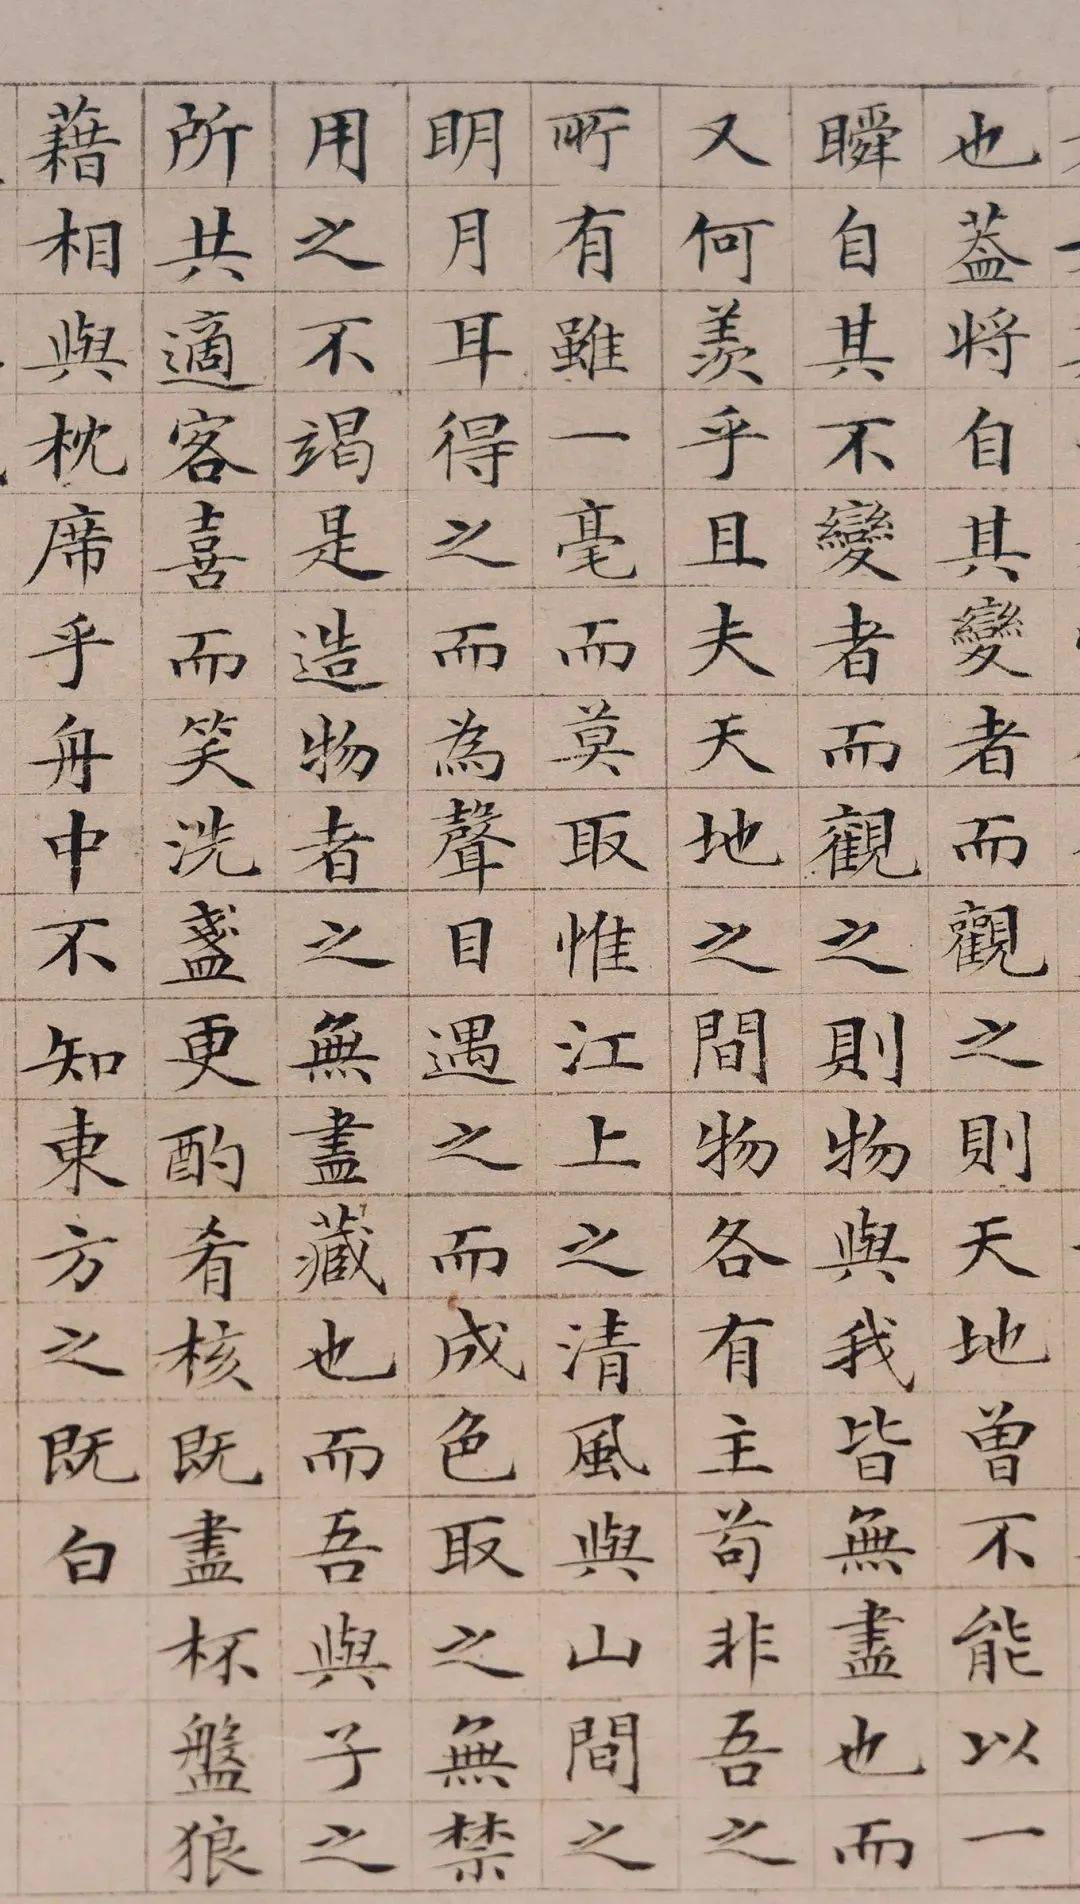 也蓋將自其變者而觀之則天地曾不能以一
瞬自其不變者而觀之則物與我皆無盡也而
又何羨乎且夫天地之間物各有主苟非吾之
所有雖一毫而莫取惟江上之清風與山間之
明月耳得之而為聲目遇之而成色取之無禁
用之不竭是造物者之無盡藏也而吾與子之
所共適客喜而笑洗盞更酌肴核既盡杯盤狼
藉相與枕席乎舟中不知東方之既白